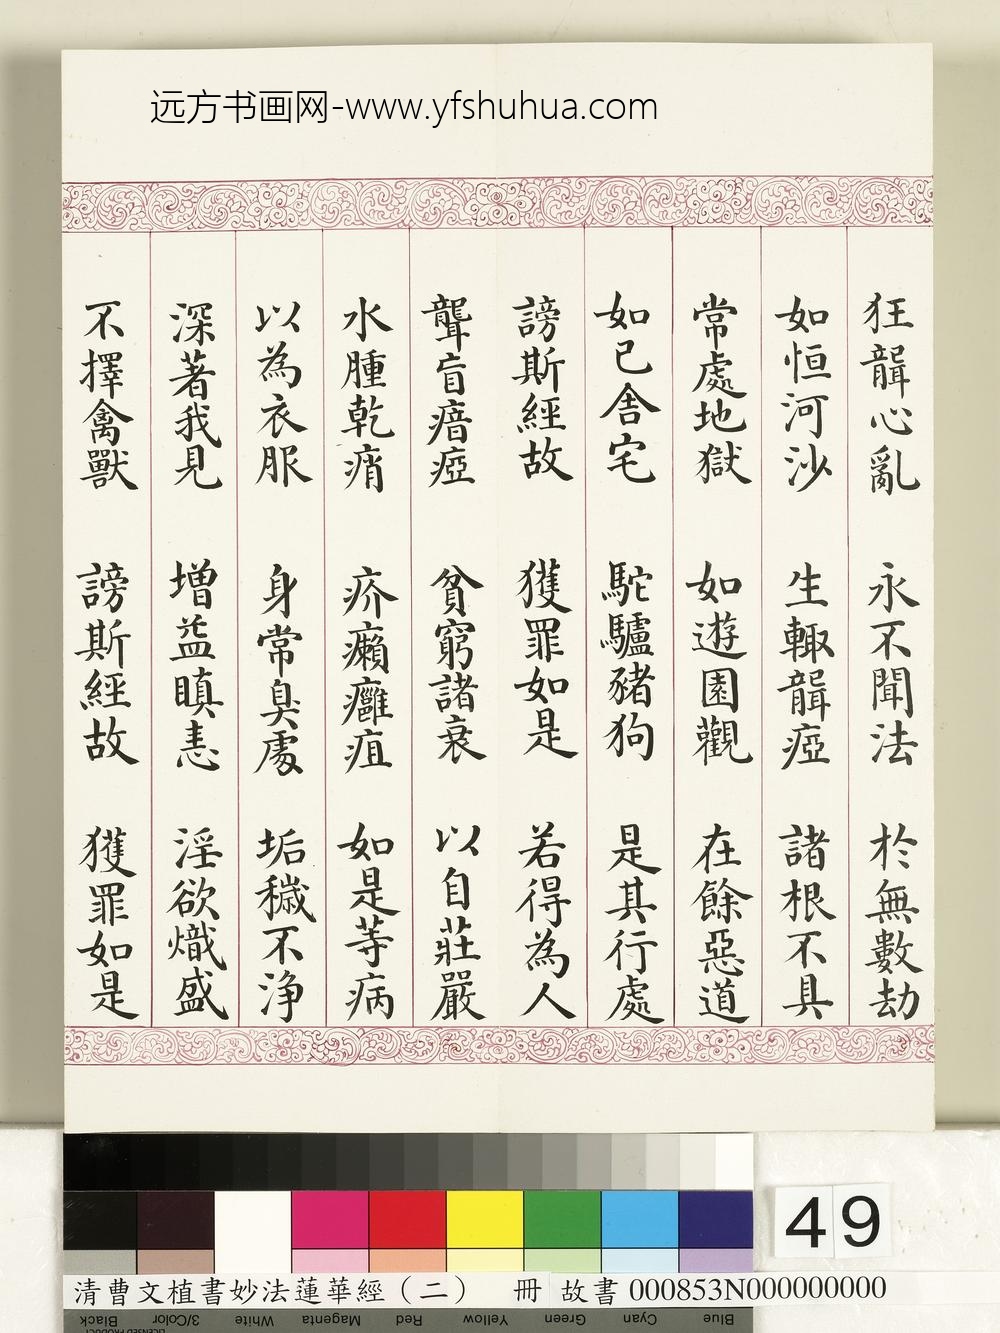 远方书画网-www.yfshuhua.com
狂聾心亂 永不聞法 於無數劫
如恒河沙 生輙聾瘂 諸根不具
常處地獄 如遊園觀 在餘惡道
如己舍宅 駝驢豬狗 是其行處
謗斯經故 獲罪如是 若得為人
聾盲瘖瘂 貧窮諸衰 以自莊嚴
水腫乾痟 疥癩癰疽 如是等病
以為衣服 身常臭處 垢穢不淨
深著我見 增益瞋恚 淫欲熾盛
不擇禽獸 謗斯經故 獲罪如是
49
清曹文植書妙法蓮華經（二） 冊 故書 000853N000000000
Black 3/Color White Magenta Red Yellow Green Cyan Blue